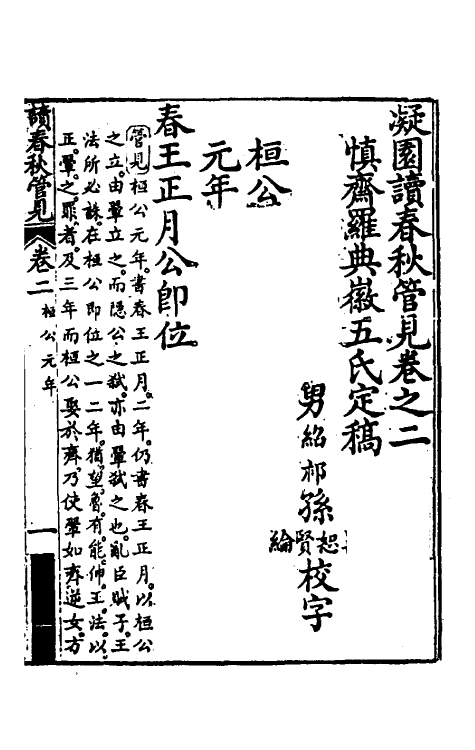 凝園讀春秋管見卷之二
慎齋羅典徽五氏定稿
男紹祁孫
恕賢綸
校字
桓公
元年
春王正月公卽位
管見桓公元年。書春王正月。二年。仍書春王正月。以桓公
之立。由翬立之。而隱公之弒。亦由翬弒之也。亂臣賊子。王
法所必誅。在桓公卽位之一二年。猶望魯有能伸王法。以
正翬之罪者。及三年而桓公娶於齊。乃使翬如齊逆女。方
讀春秋管見
卷二
桓公元年
一